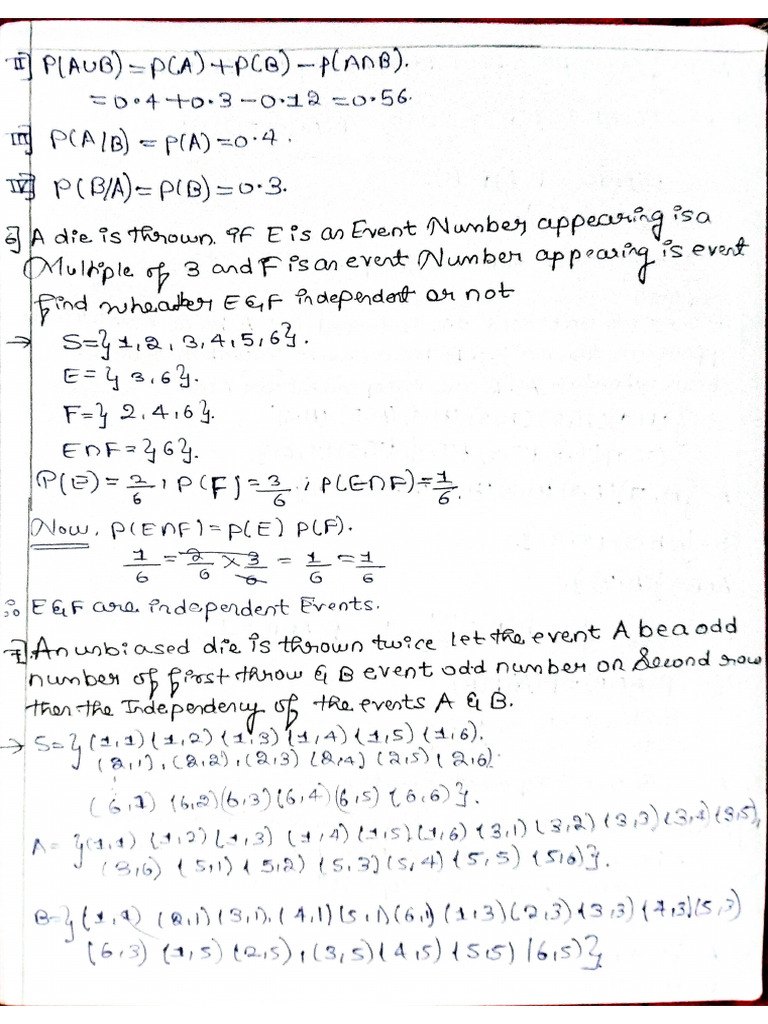 II] P(A∪B) = P(A) + P(B) - P(A∩B).
= 0.4 + 0.3 - 0.12 = 0.56.
III] P(A/B) = P(A) = 0.4.
IV] P(B/A) = P(B) = 0.3.
6] A die is thrown. If E is an Event Number appearing is a
Multiple of 3 and F is an event Number appearing is event
find wheather E & F independent or not
→ S = {1, 2, 3, 4, 5, 6}.
E = {3, 6}.
F = {2, 4, 6}.
E∩F = {6}.
P(E) = 2/6 ; P(F) = 3/6 ; P(E∩F) = 1/6.
Now, P(E∩F) = P(E) P(F).
1/6 = 2/6 × 3/6 = 1/6 = 1/6
∴ E & F are independent Events.
7] An unbiased die is thrown twice let the event A be a odd
number of first throw & B event odd number on Second row
then the Independency of the events A & B.
→ S = {(1,1) (1,2) (1,3) (1,4) (1,5) (1,6).
(2,1), (2,2), (2,3) (2,4) (2,5) (2,6).
(6,1) (6,2) (6,3) (6,4) (6,5) (6,6)}.
A = {(1,1) (1,2) (1,3) (1,4) (1,5) (1,6) (3,1) (3,2) (3,3) (3,4) (3,5),
(3,6) (5,1) (5,2) (5,3) (5,4) (5,5) (5,6)}.
B = {(1,1) (2,1) (3,1), (4,1) (5,1) (6,1) (1,3) (2,3) (3,3) (4,3) (5,3)
(6,3) (1,5) (2,5), (3,5) (4,5) (5,5) (6,5)}